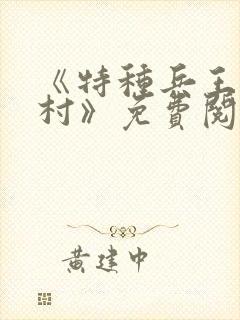 《特種兵王
村》免費閱
黃建中